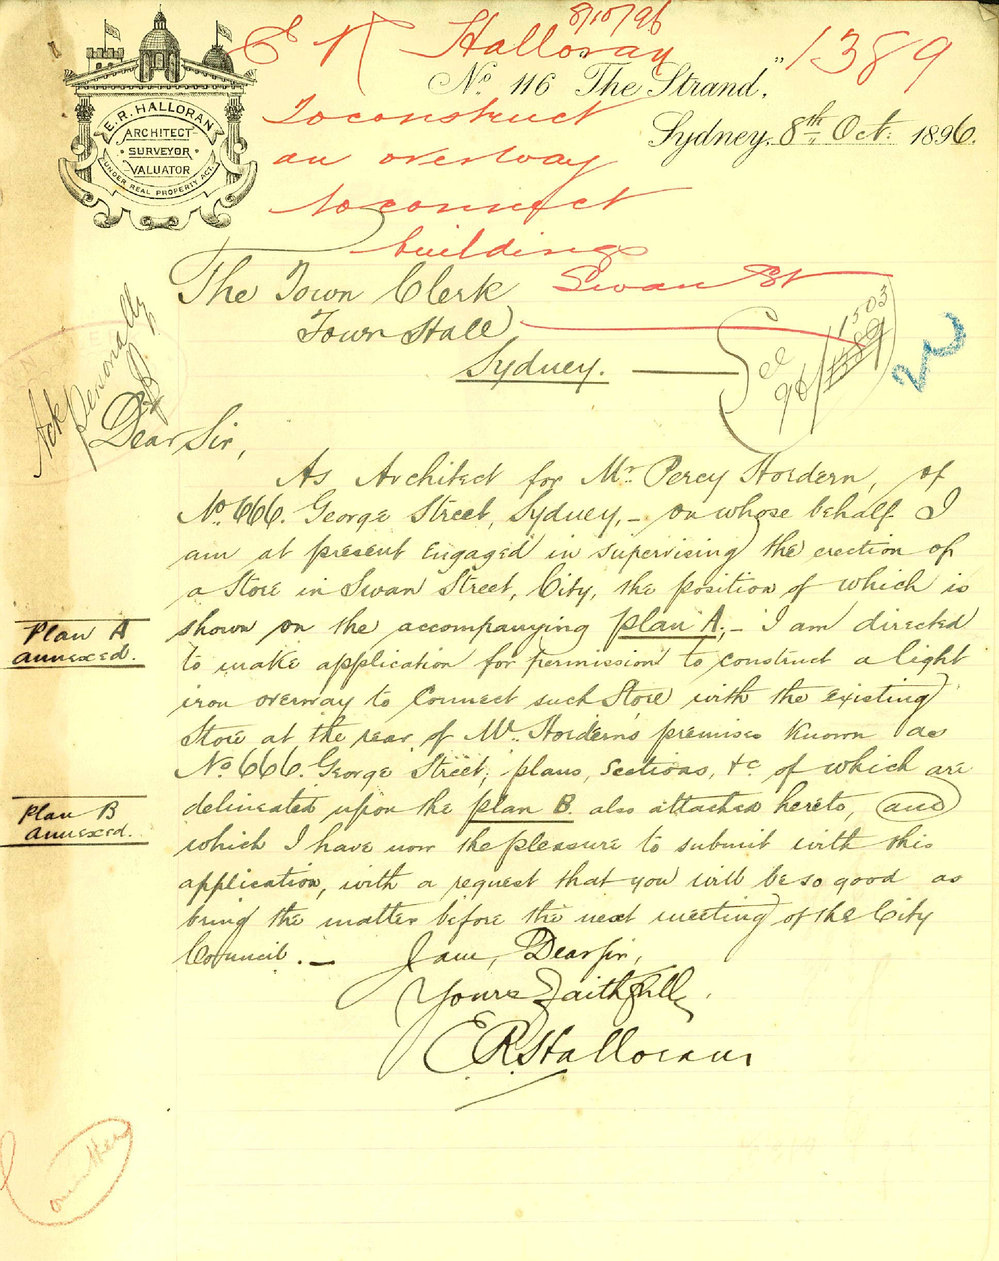 8/10/96
E R Halloran 1389
No. 116 "The Strand",
To construct
Sydney. 8th Oct. 1896.
an overway
to connect
buildings
Swan St
E. R. HALLORAN
ARCHITECT
SURVEYOR
VALUATOR
UNDER REAL PROPERTY ACT.
The Town Clerk
Town Hall
Sydney.
96/1389
1503
Ack personally
Dear Sir,
As Architect for Mr. Percy Hordern, of
No. 666. George Street, Sydney, - on whose behalf I
am at present engaged in supervising the erection of
a Store in Swan Street, City, the position of which is
shown on the accompanying plan A, - I am directed
to make application for permission to construct a light
iron overway to connect such Store with the existing
Store at the rear of Mr. Hordern's premises known as
No 666. George Street; plans, sections, &c. of which are
delineated upon the plan B. also attached hereto, and
which I have now the pleasure to submit with this
application, with a request that you will be so good as
bring the matter before the next meeting of the City
Council. -
I am, Dear Sir,
Yours Faithfully,
E. R. Halloran
Plan A
annexed.
Plan B
annexed.